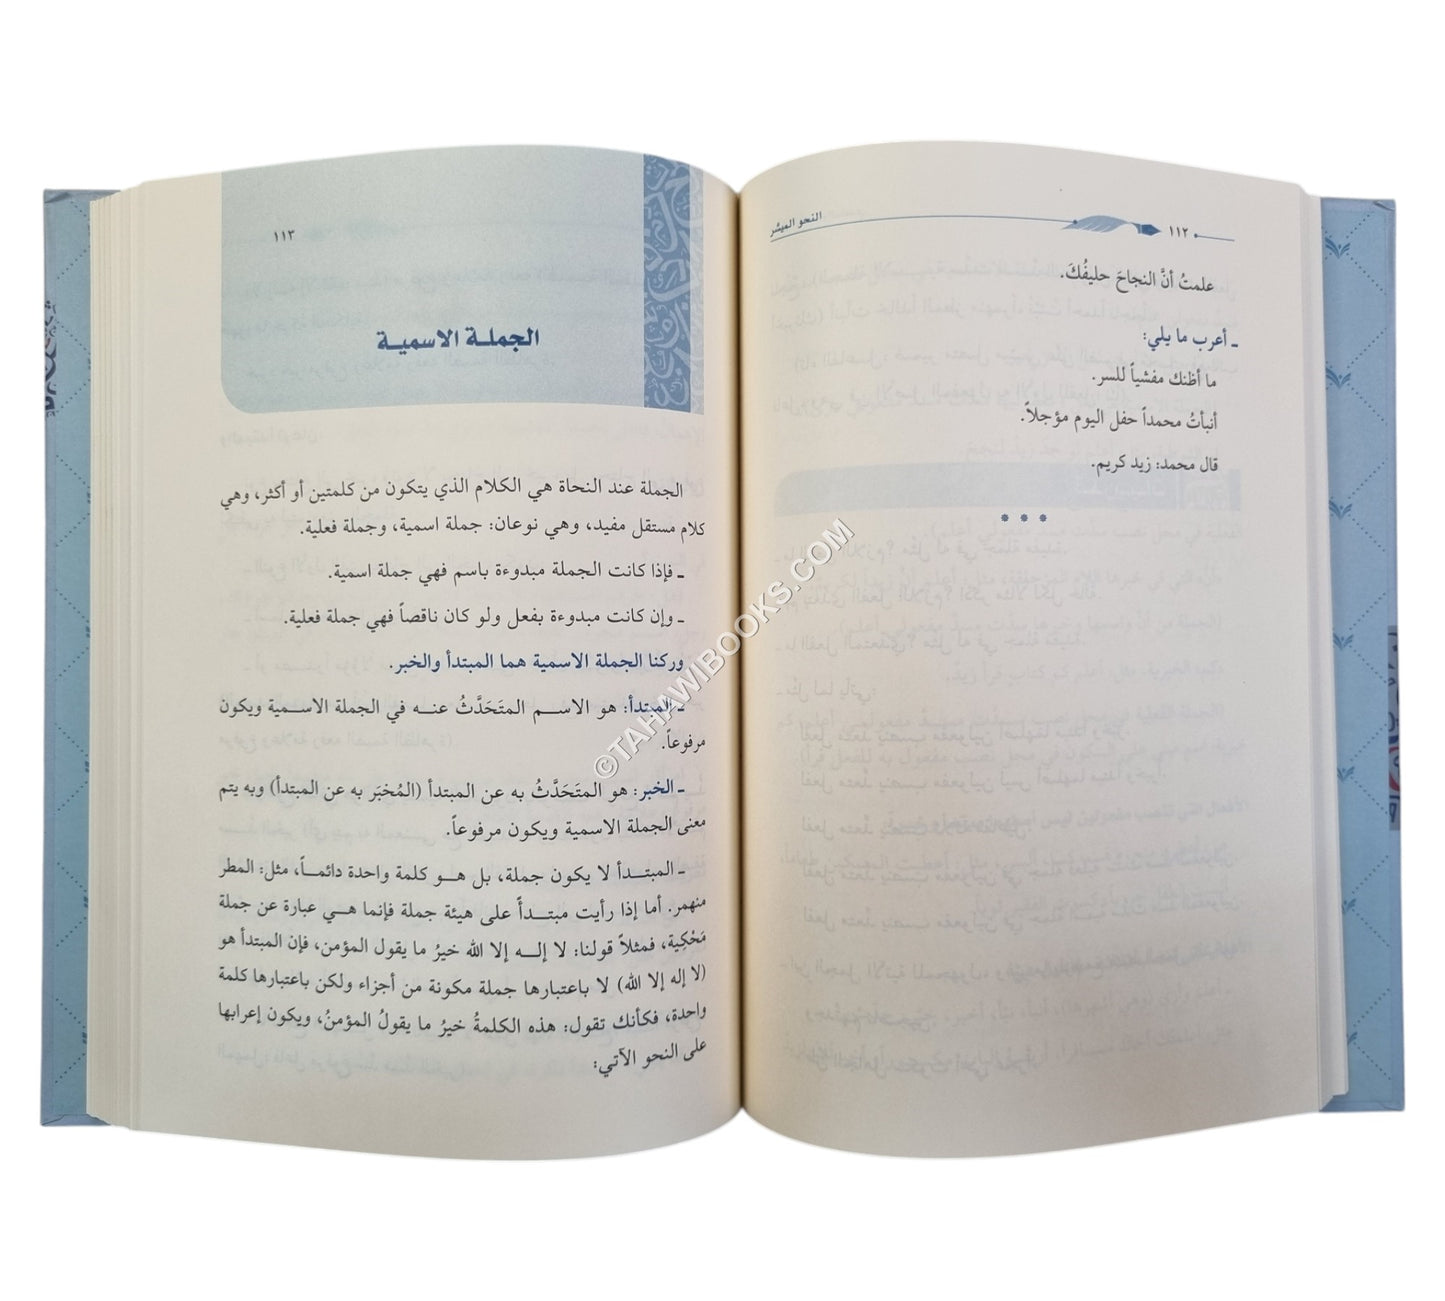 النحو الميسّر
١١٢
علمتُ أنَّ النجاحَ حليفُكَ.
ـ أعرب ما يلي:
ما أظنك مفشياً للسر.
أنبأتُ محمداً حفل اليوم مؤجلاً.
قال محمد: زيد كريم.
* * *
١١٣
الجملة الاسمية
الجملة عند النحاة هي الكلام الذي يتكون من كلمتين أو أكثر، وهي
كلام مستقل مفيد، وهي نوعان: جملة اسمية، وجملة فعلية.
ـ فإذا كانت الجملة مبدوءة باسم فهي جملة اسمية.
ـ وإن كانت مبدوءة بفعل ولو كان ناقصاً فهي جملة فعلية.
وركنا الجملة الاسمية هما المبتدأ والخبر.
ـ المبتدأ: هو الاسم المتَحَدَّثُ عنه في الجملة الاسمية ويكون
مرفوعاً.
ـ الخبر: هو المتَحَدَّثُ به عن المبتدأ (المُخبَر به عن المبتدأ) وبه يتم
معنى الجملة الاسمية ويكون مرفوعاً.
ـ المبتدأ لا يكون جملة، بل هو كلمة واحدة دائماً، مثل: المطر
منهمر. أما إذا رأيت مبتدأً على هيئة جملة فإنما هي عبارة عن جملة
مَحْكِية، فمثلاً قولنا: لا إله إلا الله خيرُ ما يقول المؤمن، فإن المبتدأ هو
(لا إله إلا الله) لا باعتبارها جملة مكونة من أجزاء ولكن باعتبارها كلمة
واحدة، فكأنك تقول: هذه الكلمةُ خيرُ ما يقولُ المؤمنُ، ويكون إعرابها
على النحو الآتي:
©TAHAWIBOOKS.COM